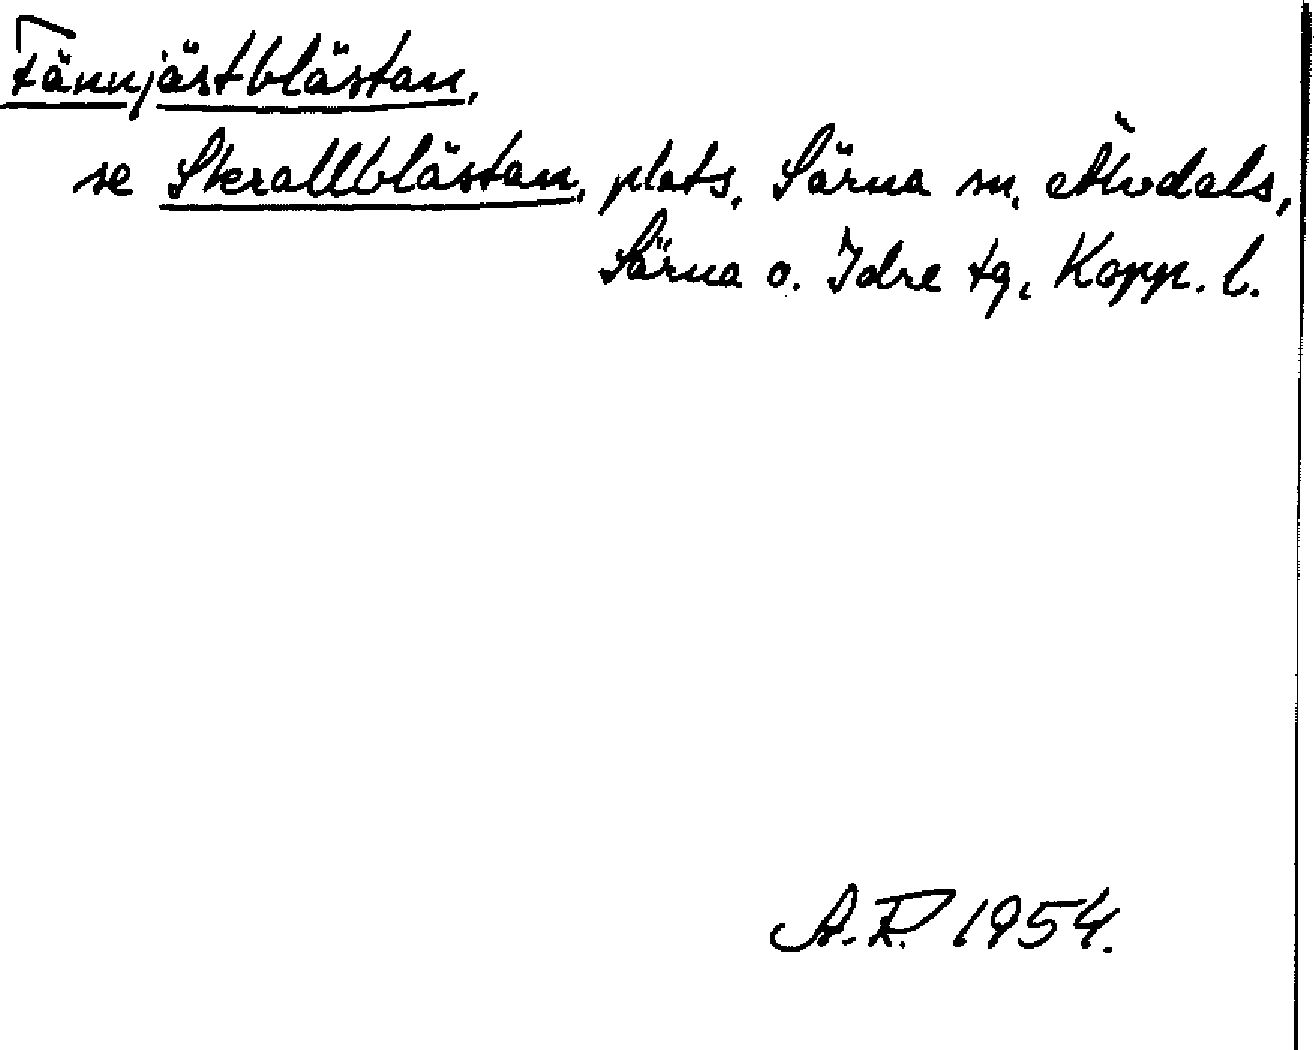 Fännjästblästan,
se Skrallblästan, plats, Särna sn, Älvdals,
Särna o. Idre tg, Kopp. l.
A.F. 1954.